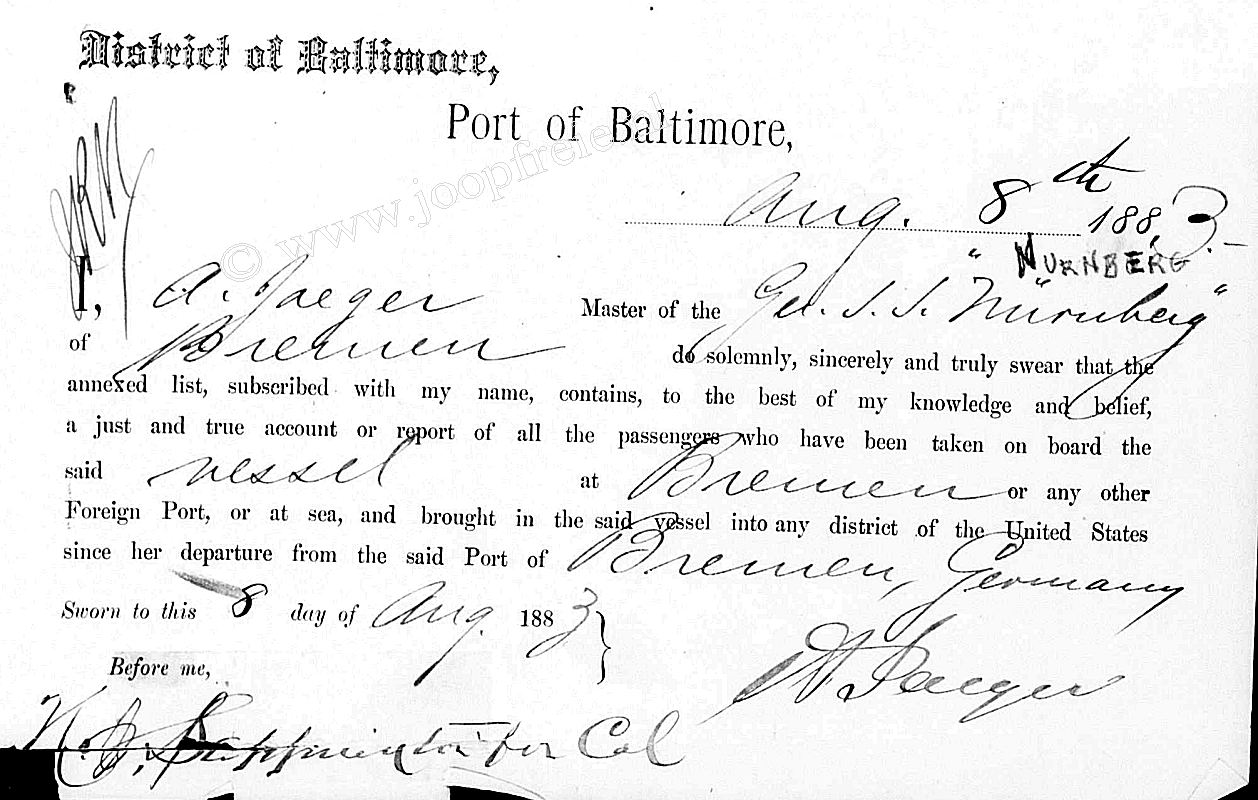 District of Baltimore,
Port of Baltimore,
Aug. 8th 1883.-
"NURNBERG"
I, A. Jaeger Master of the Ger. S. S. "Nürnberg"
of Bremen do solemnly, sincerely and truly swear that the
annexed list, subscribed with my name, contains, to the best of my knowledge and belief,
a just and true account or report of all the passengers who have been taken on board the
said vessel at Bremen or any other
Foreign Port, or at sea, and brought in the said vessel into any district of the United States
since her departure from the said Port of Bremen, Germany
Sworn to this 8 day of Aug. 1883 }
A Jaeger
Before me,
for Col
© www.joopfreie